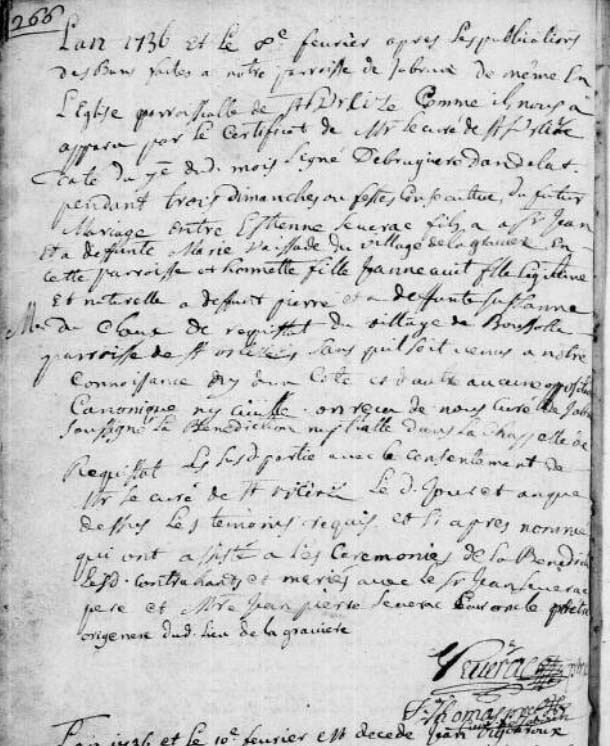 266
L'an 1736 et le 8e fevrier apres les publications
des Bans faites a notre parroisse de Jabrun de même En
L'Eglise parroissialle de St Urlize Comme il nous a
apparu par le Certificat de Mr le curé de St Urlize
date du 7e dud. mois signé Debruguiere Dandelat
pendant trois dimanches ou festes Consecutive, du futur
Mariage entre Estienne Severac fils a a Sr Jean
Et a deffunte Marie Vaissade du village de la graviere En
cette parroisse et honnette fille Janne fille legitime
Et naturelle a deffunt pierre et a deffunte Sussanne
du de requistat du village de
parroisse de St sans qu'il soit venus a notre
Connoissance ny d'un Coté et d'autre aucune opposition
Canonique ny civille on reçu de nous Curé de Jabrun
soussigné La Benediction nuptialle dans la chappelle de
Requistat Les susd partie avec le consentement de
Mr le curé de St Le d. Jour et an que
dessus Les temoins requis et si apres nommé
qui ont assisté a les Ceremonies de la Benedict
Lesd. contrahants et mariés avec le Sr Jean Severac
pere et Mre Jean pierre Severac pretre
origenere dud. Lieu de la graviere
Severac
Thomas
L'an 1736 et le 10e fevrier est decede Jean